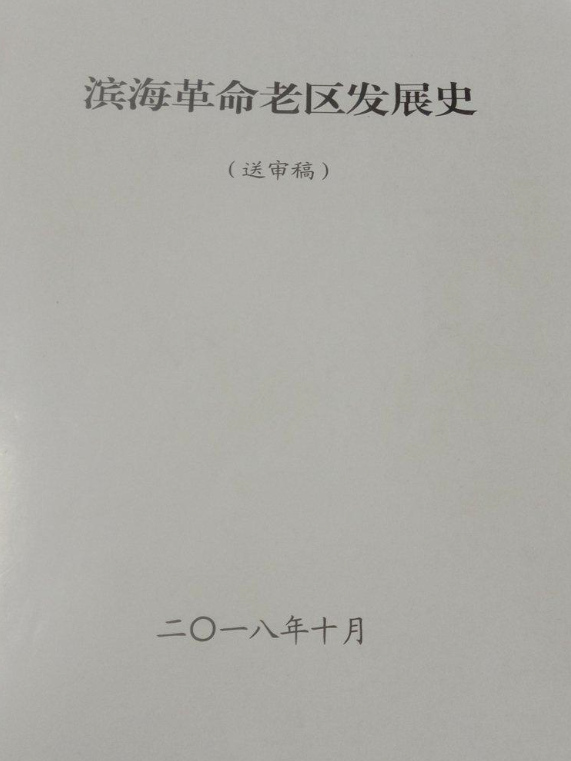 滨海革命老区发展史
（送审稿）
二〇一八年十月